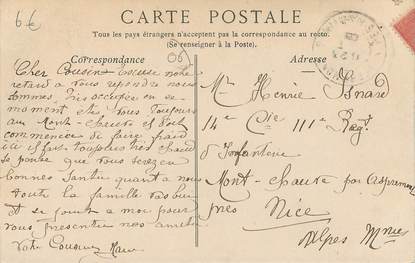 6€
CARTE POSTALE
Tous les pays étrangers n'acceptent pas la correspondance au recto.
(Se renseigner à la Poste).
Correspondance
06
Adresse
Cher Cousin Excuse notre
retard a vous repondre nous
sommes très occupée en se
moment etes vous toujours
au Mont-Chauve il doit
commencer de faire froid
ici il fait toujours très chaud
je pense que vous serez en
bonnes santée quant a nous
toute la famille va bien
et se joint a moi pour
vous presenter nos amitiés
Votre Cousine
Mr Henrie Isnard
14e Cie 111e Regt
d'Infanterie
Mont-chauve par Aspremont
près Nice
Alpes Mmes